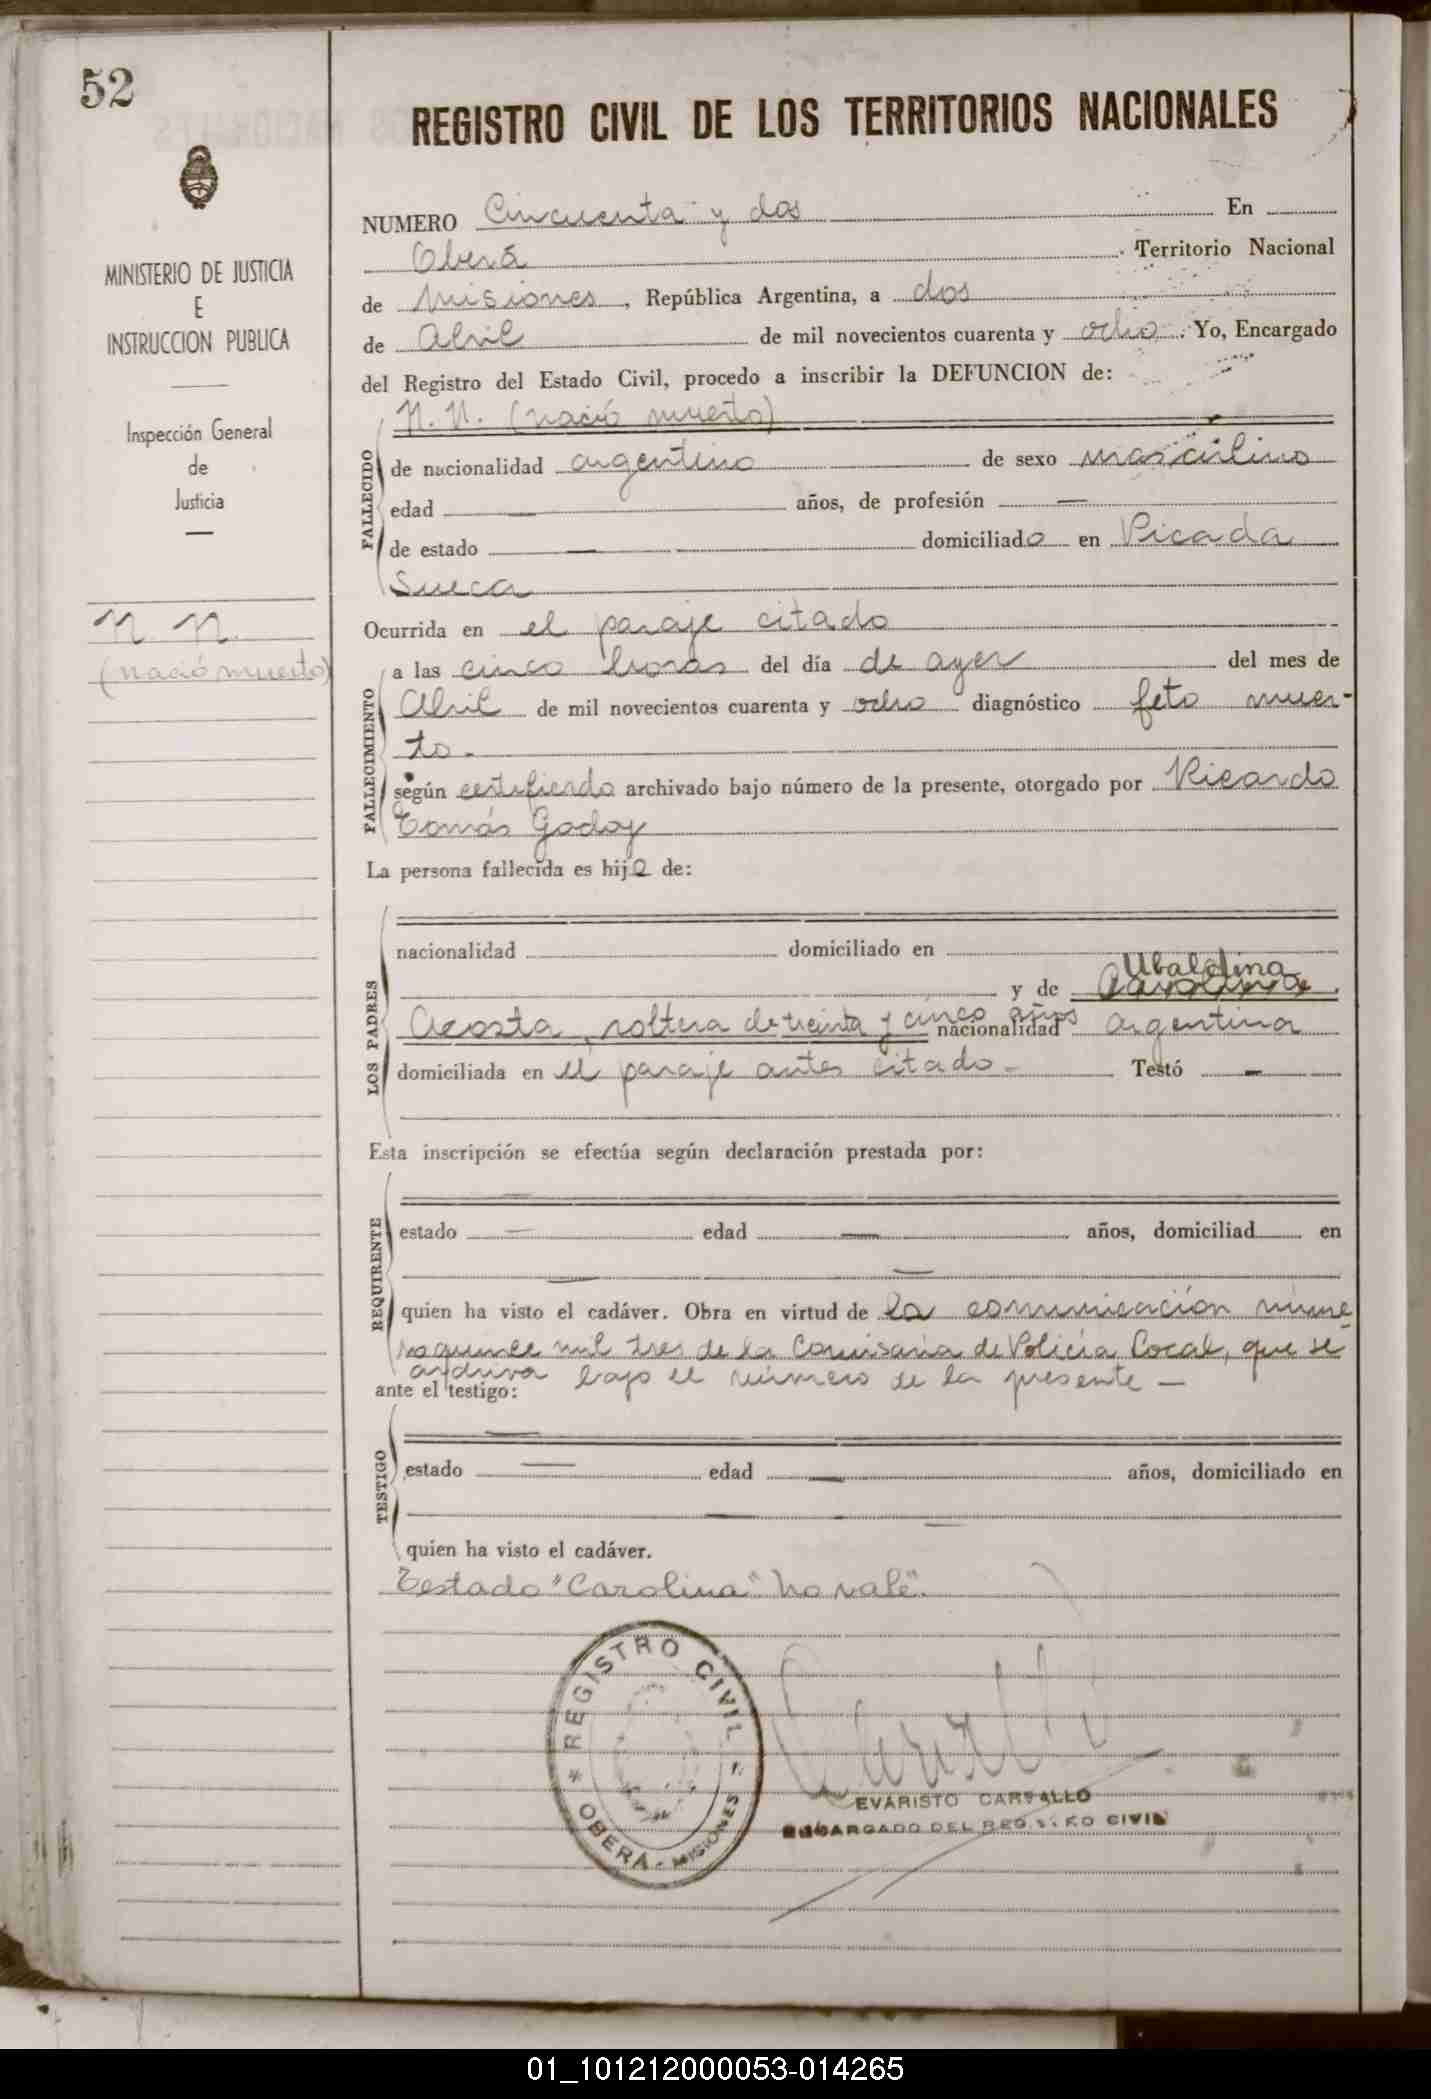 52
REGISTRO CIVIL DE LOS TERRITORIOS NACIONALES
MINISTERIO DE JUSTICIA
E
INSTRUCCION PUBLICA
Inspección General
de
Justicia
N. N.
(nació muerto)
NUMERO Cincuenta y dos En
Oberá Territorio Nacional
de Misiones, República Argentina, a dos
de Abril de mil novecientos cuarenta y ocho. Yo, Encargado
del Registro del Estado Civil, procedo a inscribir la DEFUNCION de:
N. N. (nació muerto)
FALLECIDO
de nacionalidad argentino de sexo masculino
edad — años, de profesión —
de estado — domiciliado en Picada
Sueca
Ocurrida en el paraje citado
FALLECIMIENTO
a las cinco horas del día de ayer del mes de
Abril de mil novecientos cuarenta y ocho diagnóstico feto muer-
to.
según certificado archivado bajo número de la presente, otorgado por Ricardo
Tomás Godoy
La persona fallecida es hijo de:
LOS PADRES
nacionalidad domiciliado en
Ubaldina
y de Carolina
Acosta, soltera de treinta y cinco años nacionalidad argentina
domiciliada en el paraje antes citado.- Testó —
Esta inscripción se efectúa según declaración prestada por:
REQUIRENTE
estado — edad — años, domiciliad en
quien ha visto el cadáver. Obra en virtud de la comunicación núme
ro quince mil tres de la Comisaría de Policía Local, que se
archiva bajo el número de la presente —
ante el testigo:
TESTIGO
estado — edad — años, domiciliado en
quien ha visto el cadáver.
Testado "Carolina" No vale".
REGISTRO CIVIL
OBERÁ - MISIONES
EVARISTO CARVALLO
ENCARGADO DEL REGISTRO CIVIL
01_101212000053-014265